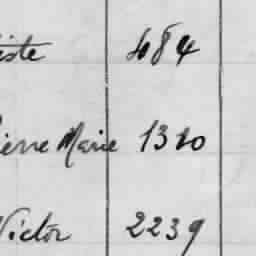 iste 484
ierre Marie 1320
Victor 2239